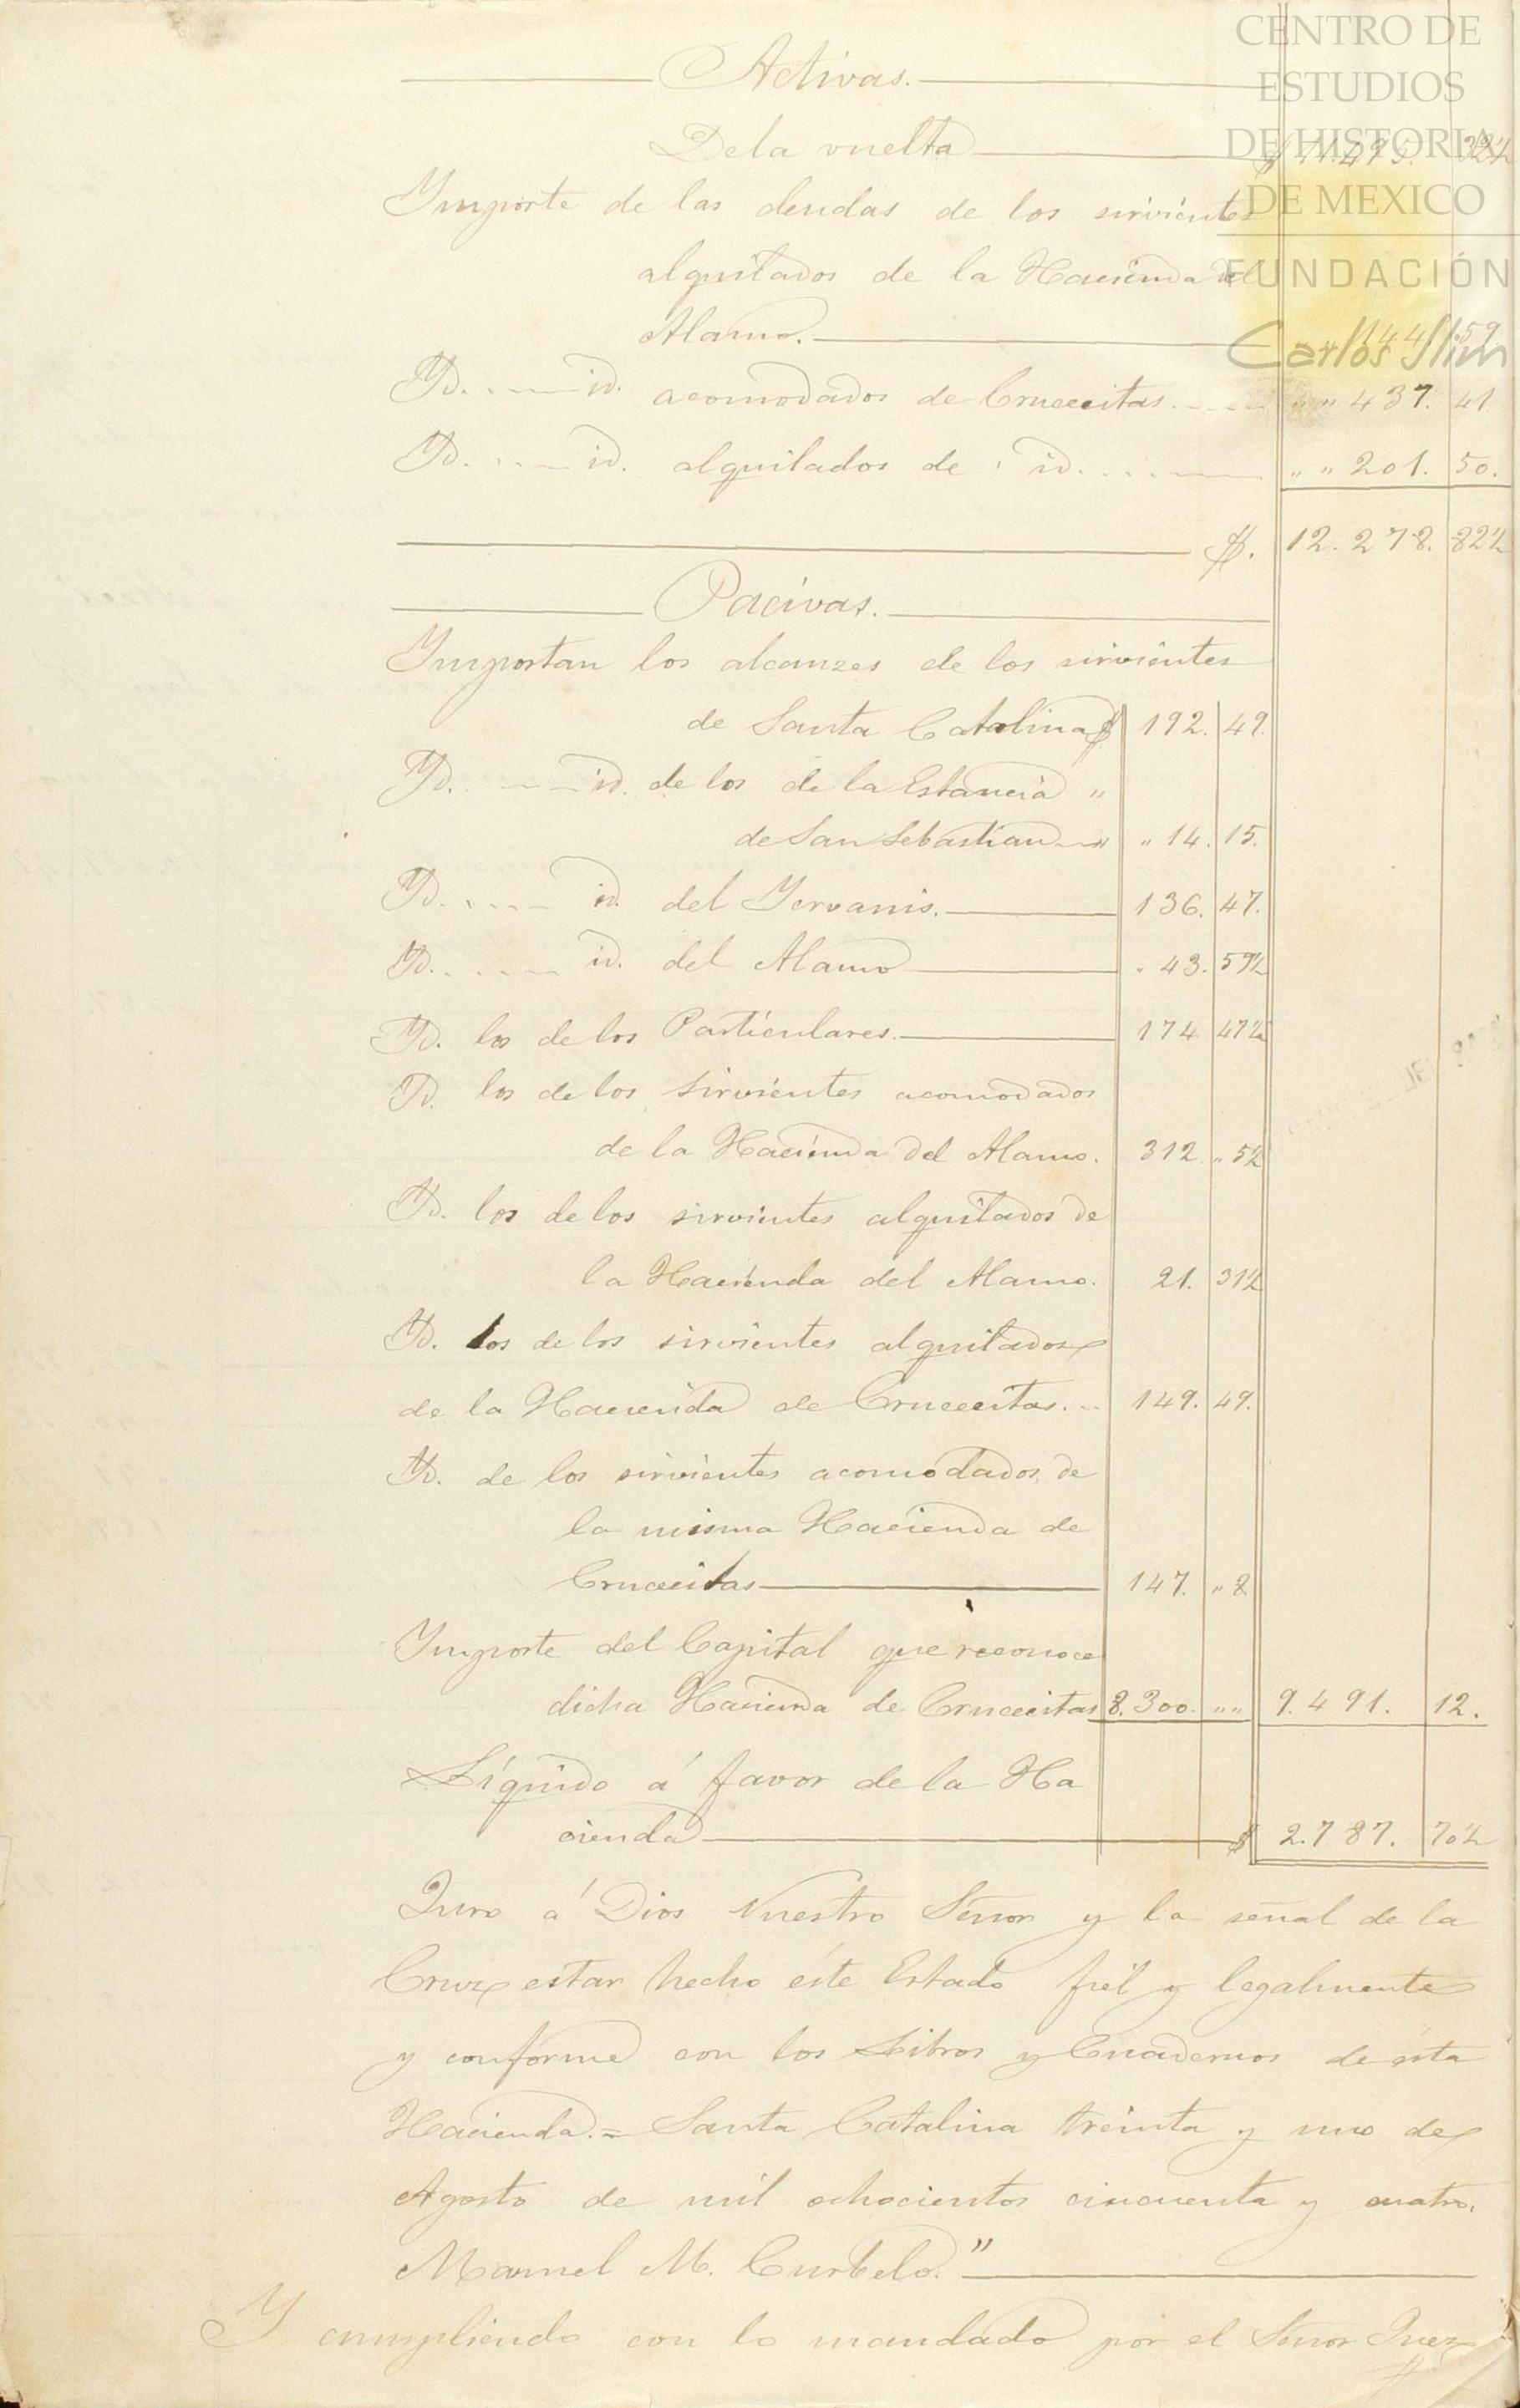 Activas.
De la vuelta $ 11.495. 32½
Importe de las deudas de los sirvientes
alquilados de la Hacienda del
Alamo. „ 144. 59
Yd. id. acomodados de Crucecitas „ „ 437. 41.
Yd. id. alquilados de id. „ „ 201. 50.
$. 12.278. 82½
Pacivas.
Importan los alcanzes de los sirvientes
de Santa Catalina $ 192. 49.
Yd. id. de los de la Estancia „
de San Sebastian „ „ 14. 15.
Yd. id. del Yervanis. 136. 47.
Yd. id. del Alamo „ 43. 59½
Yd. los de los Particulares. 174. 47½
Yd. los de los sirvientes acomodados
de la Hacienda del Alamo. 312. „ 5½
Yd. los de los sirvientes alquilados de
la Hacienda del Alamo. 21. 31½
Yd. los de los sirvientes alquilados
de la Hacienda de Crucecitas... 149. 49.
Yd. de los sirvientes acomodados de
la misma Hacienda de
Crucecitas 147. „ 8
Importe del Capital que reconoce
dicha Hacienda de Crucecitas 8.300. „„ 9.491. 12.
Líquido á favor de la Ha
cienda $ 2.787. 70½
Juro á Dios Nuestro Señor y la señal de la
Cruz estar hecho éste Estado fiel y legalmente
y conforme con los Libros y Cuadernos de ésta
Hacienda.= Santa Catalina treinta y uno de
Agosto de mil ochocientos cincuenta y cuatro.
Manuel M. Curbelo."
Y cumpliendo con lo mandado por el Señor Juez
CENTRO DE
ESTUDIOS
DE HISTORIA
DE MEXICO
FUNDACIÓN
Carlos Slim